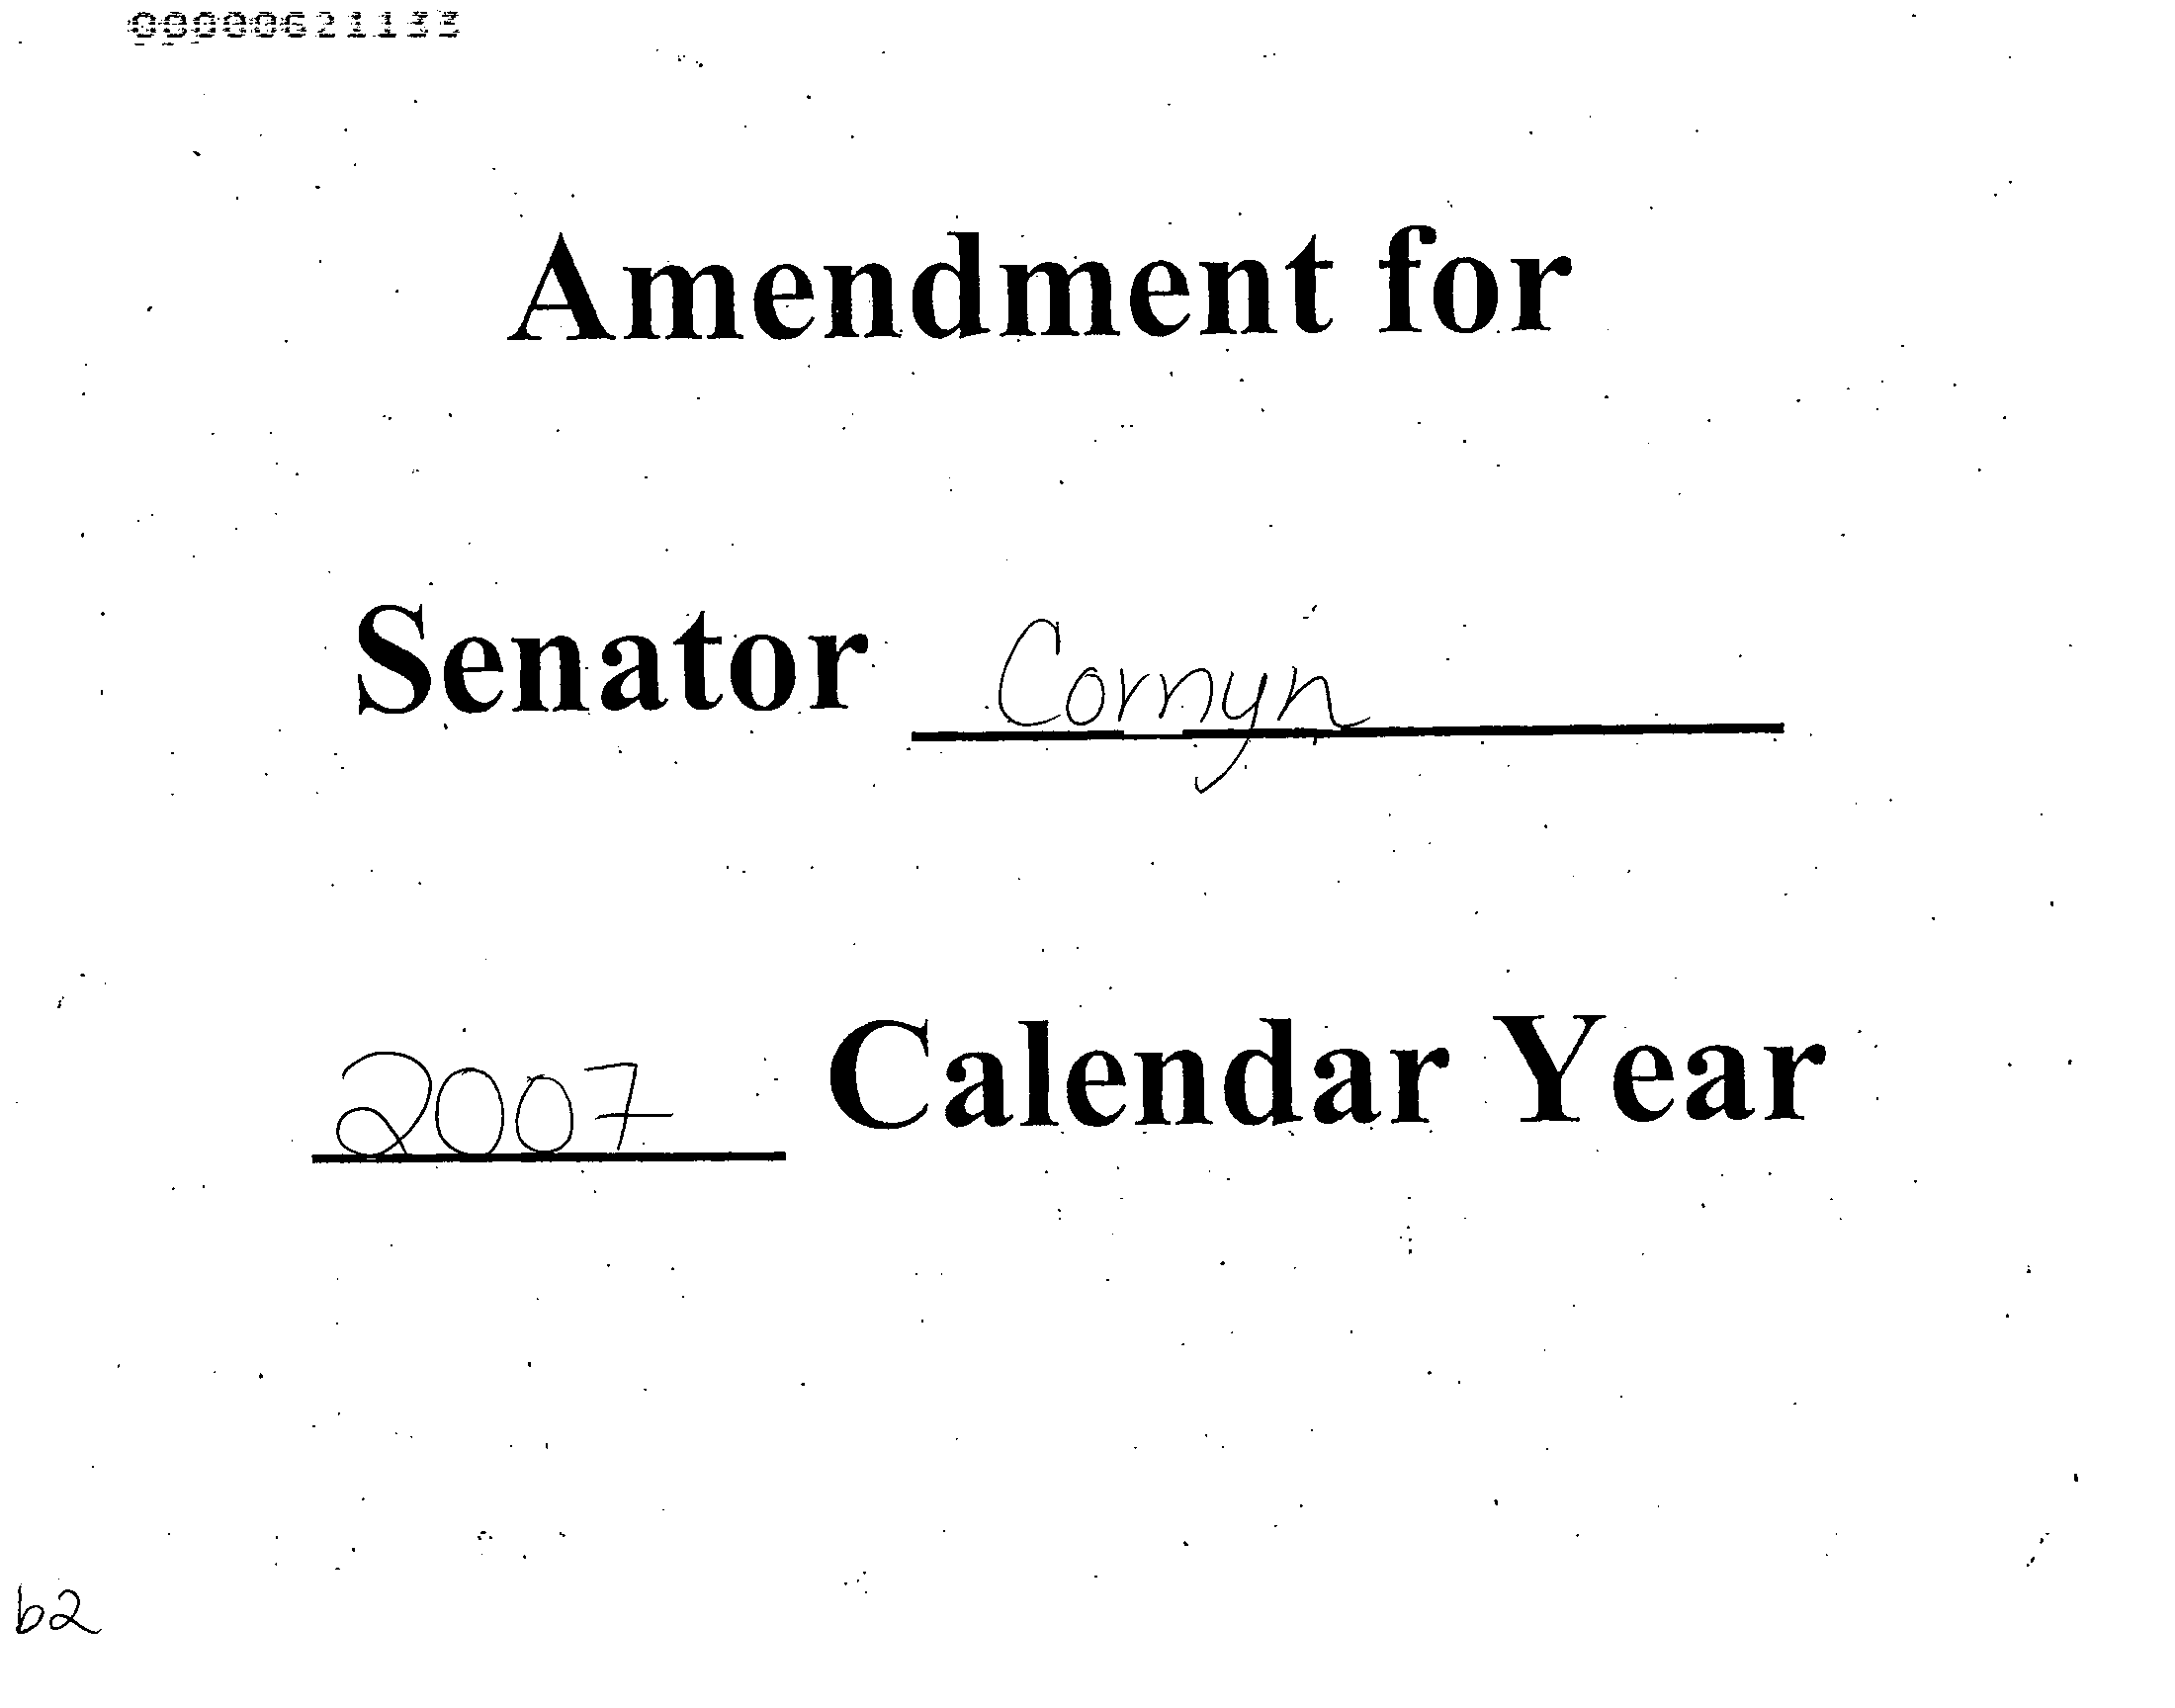 00000621133
Amendment for
Senator Cornyn
2007 Calendar Year
b2